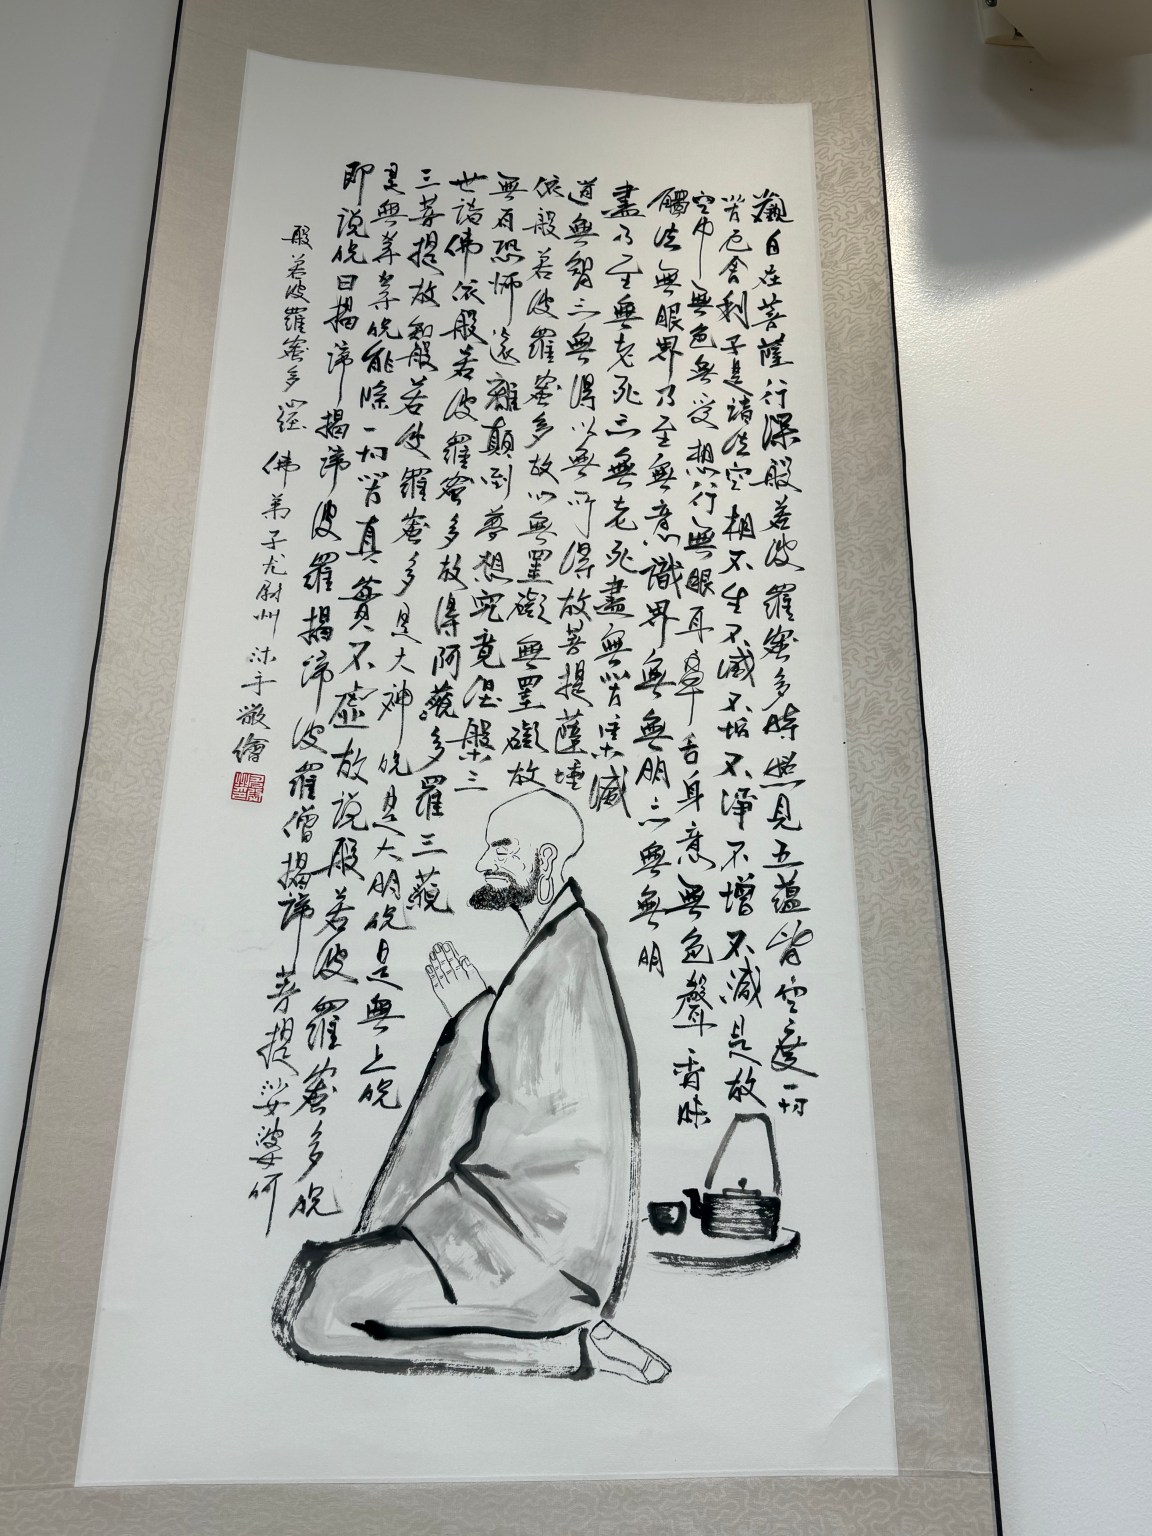 觀自在菩薩行深般若波羅蜜多時照見五蘊皆空度一切
苦厄舍利子是諸法空相不生不滅不垢不淨不增不減是故
空中無色無受想行無眼耳鼻舌身意無色聲香味
觸法無眼界乃至無意識界無無明亦無無明
盡乃至無老死亦無老死盡無苦集滅
道無智亦無得以無所得故菩提薩埵
依般若波羅蜜多故心無罣礙無罣礙故
無有恐怖遠離顛倒夢想究竟涅槃三
世諸佛依般若波羅蜜多故得阿藐多羅三藐
三菩提故知般若波羅蜜多是大神咒是大明咒是無上咒
是無等等咒能除一切苦真實不虛故說般若波羅蜜多咒
即說咒曰揭諦揭諦波羅揭諦波羅僧揭諦菩提娑婆訶
般若波羅蜜多心經 佛弟子尤尉州沐手敬繪